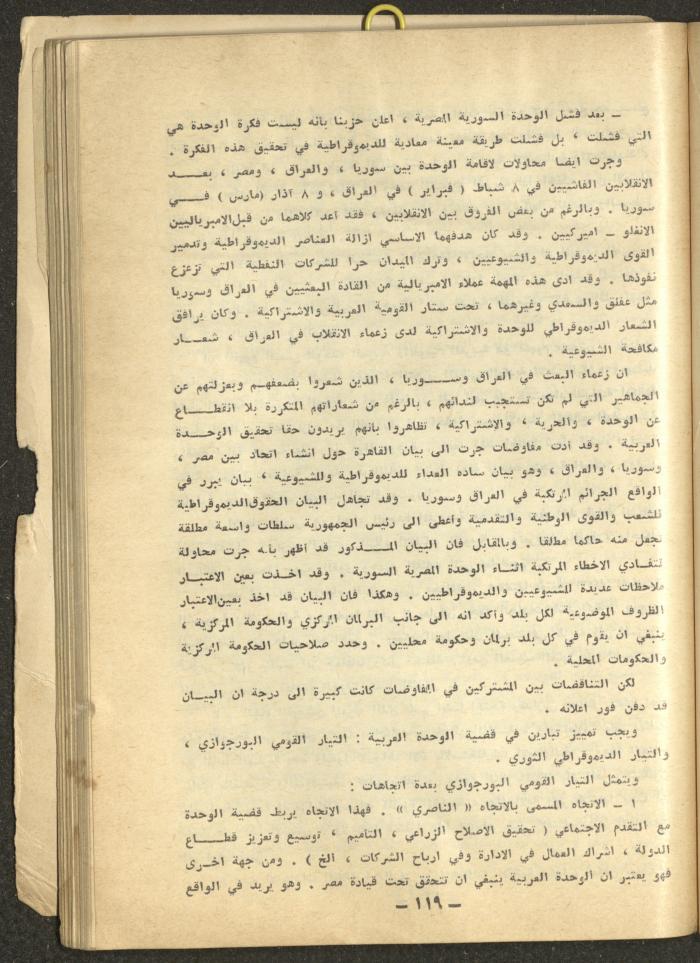 ــ بعد فشل الوحدة السورية المصرية ، اعلن حزبنا بانه ليست فكرة الوحدة هي
التي فشلت ، بل فشلت طريقة معينة معادية للديموقراطية في تحقيق هذه الفكرة .
وجرت ايضا محاولات لاقامة الوحدة بين سوريا ، والعراق ، ومصر ، بعــــد
الانقلابين الفاشيين في ٨ شباط ( فبراير ) في العراق ، و ٨ آذار (مارس ) فــــي
سوريا . وبالرغم من بعض الفروق بين الانقلابين ، فقد اعد كلاهما من قبل الامبرياليين
الانغلو ــ اميركيين . وقد كان هدفهما الاساسي ازالة العناصر الديموقراطية وتدمير
القوى الديموقراطية والشيوعيين ، وترك الميدان حرا للشركات النفطية التي تزعزع
نفوذها . وقد ادى هذه المهمة عملاء الامبريالية من القادة البعثيين في العراق وسوريا
مثل عفلق والسعدي وغيرهما ، تحت ستار القومية العربية والاشتراكية . وكان يرافق
الشعار الديموقراطي للوحدة والاشتراكية لدى زعماء الانقلاب في العراق ، شعــــار
مكافحة الشيوعية .
ان زعماء البعث في العراق وســــوريا ، الذين شعروا بضعفهم وبعزلتهم عن
الجماهير التي لم تكن تستجيب لندائهم ، بالرغم من شعاراتهم المتكررة بلا انقطــــاع
عن الوحدة ، والحرية ، والاشتراكية ، تظاهروا بانهم يريدون حقا تحقيق الوحــــدة
العربية . وقد أدت مفاوضات جرت الى بيان القاهرة حول انشاء اتحاد بين مصر ،
وسوريا ، والعراق ، وهو بيان ساده العداء للديموقراطية وللشيوعية ، بيان يبرر في
الواقع الجرائم المرتكبة في العراق وسوريا . وقد تجاهل البيان الحقوق الديموقراطية
للشعب والقوى الوطنية والتقدمية وأعطى الى رئيس الجمهورية سلطات واسعة مطلقة
تجعل منه حاكما مطلقا . وبالمقابل فان البيان المــــذكور قد أظهر بأنه جرت محاولة
لتفادي الاخطاء المرتكبة اثناء الوحدة المصرية السورية . وقد اخذت بعين الاعتبار
ملاحظات عديدة للشيوعيين والديموقراطيين . وهكذا فان البيان قد اخذ بعين الاعتبار
الظروف الموضوعية لكل بلد وأكد انه الى جانب البرلمان المركزي والحكومة المركزية ،
ينبغي ان يقوم في كل بلد برلمان وحكومة محليين . وحدد صلاحيات الحكومة المركزية
والحكومات المحلية .
لكن التناقضات بين المشتركين في المفاوضات كانت كبيرة الى درجة ان البيــــان
قد دفن فور اعلانه .
ويجب تمييز تيارين في قضية الوحدة العربية : التيار القومي البورجوازي ،
والتيار الديموقراطي الثوري .
ويتمثل التيار القومي البورجوازي بعدة اتجاهات :
١ ــ الاتجاه المسمى بالاتجاه « الناصري » . فهذا الاتجاه يربط قضية الوحدة
مع التقدم الاجتماعي ( تحقيق الاصلاح الزراعي ، التاميم ، توسيع وتعزيز قطــــاع
الدولة ، اشراك العمال في الادارة وفي ارباح الشركات ، الخ ) . ومن جهة اخــرى
فهو يعتبر ان الوحدة العربية ينبغي ان تتحقق تحت قيادة مصر . وهو يريد في الواقع
ــ ١١٩ ــ